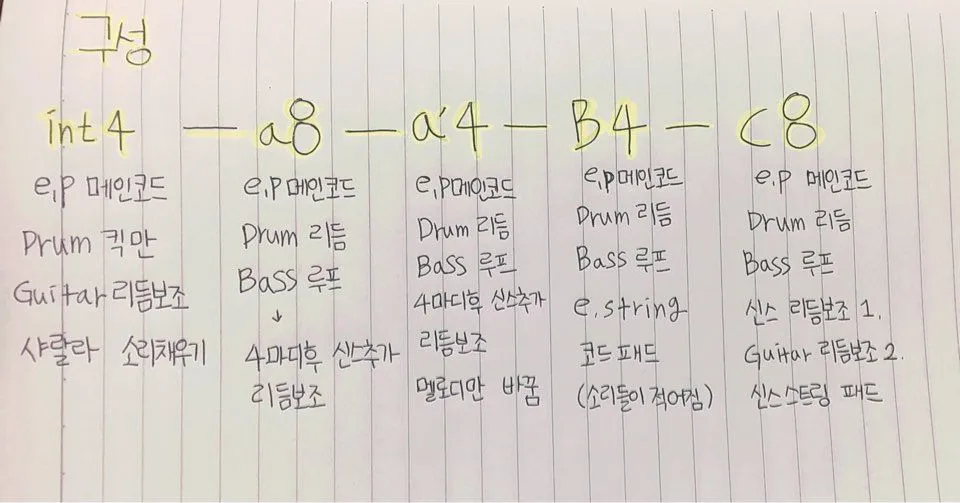 구성
int 4 — a8 — a'4 — B4 — C8
e,p 메인코드
Drum 킥만
Guitar 리듬보조
샤랄라 소리채우기
e,p 메인코드
Drum 리듬
Bass 루프
↓
4마디후 신스추가
리듬보조
e,p메인코드
Drum 리듬
Bass 루프
4마디후 신스추가
리듬보조
멜로디만 바꿈
e,p메인코드
Drum 리듬
Bass 루프
e.string
코드패드
(소리들이 적어짐)
e,p 메인코드
Drum 리듬
Bass 루프
신스 리듬보조 1.
Guitar 리듬보조 2.
신스스트링 패드